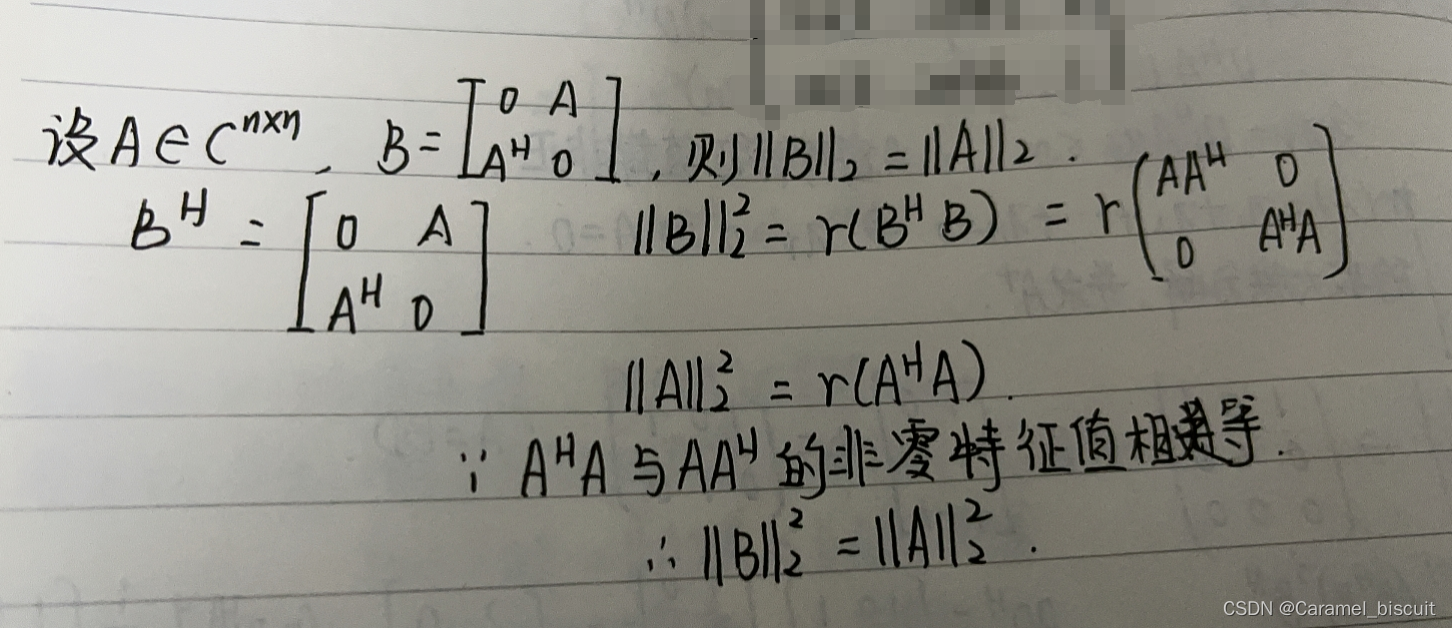 设A∈C^{n×n}, B=[0 A; A^H 0], 则||B||_2=||A||_2.
B^H=[0 A; A^H 0] ||B||_2^2=r(B^H B)=r(AA^H 0; 0 A^HA)
||A||_2^2=r(A^HA).
∵A^HA与AA^H的非零特征值相等.
∴||B||_2^2=||A||_2^2.
CSDN @Caramel_biscuit